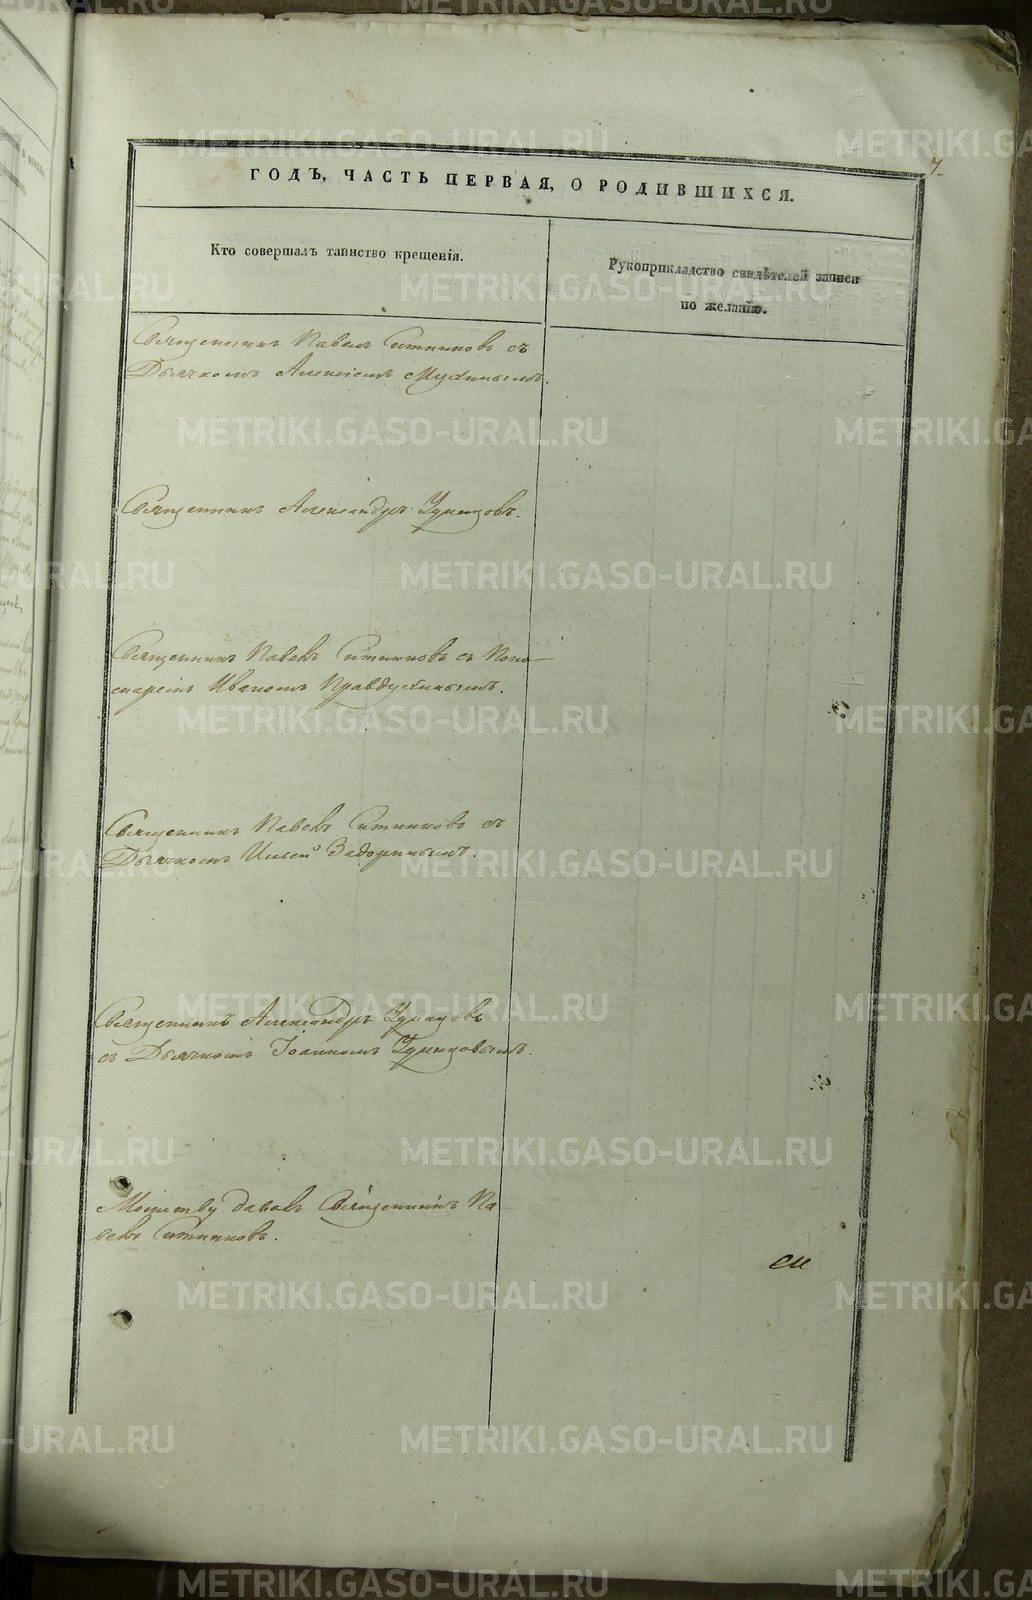 7.
ГОДЪ, ЧАСТЬ ПЕРВАЯ, О РОДИВШИХСЯ.
Кто совершалъ таинство крещенія.
Рукоприкладство свидѣтелей записи
по желанію.
Священникъ Павелъ Ситниковъ съ
Дьячкомъ Алексіемъ Мухинымъ.
Священникъ Александръ Удинцовъ.
Священникъ Павелъ Ситниковъ съ Поно-
маремъ Иваномъ Правдухинымъ.
Священникъ Павелъ Ситниковъ съ
Дьячкомъ Ильей Задоринымъ.
Священникъ Александръ Удинцовъ
съ Дьячкомъ Іоанномъ Удинцовымъ.
Молитву давалъ Священникъ Па-
велъ Ситниковъ.
METRIKI.GASO-URAL.RU